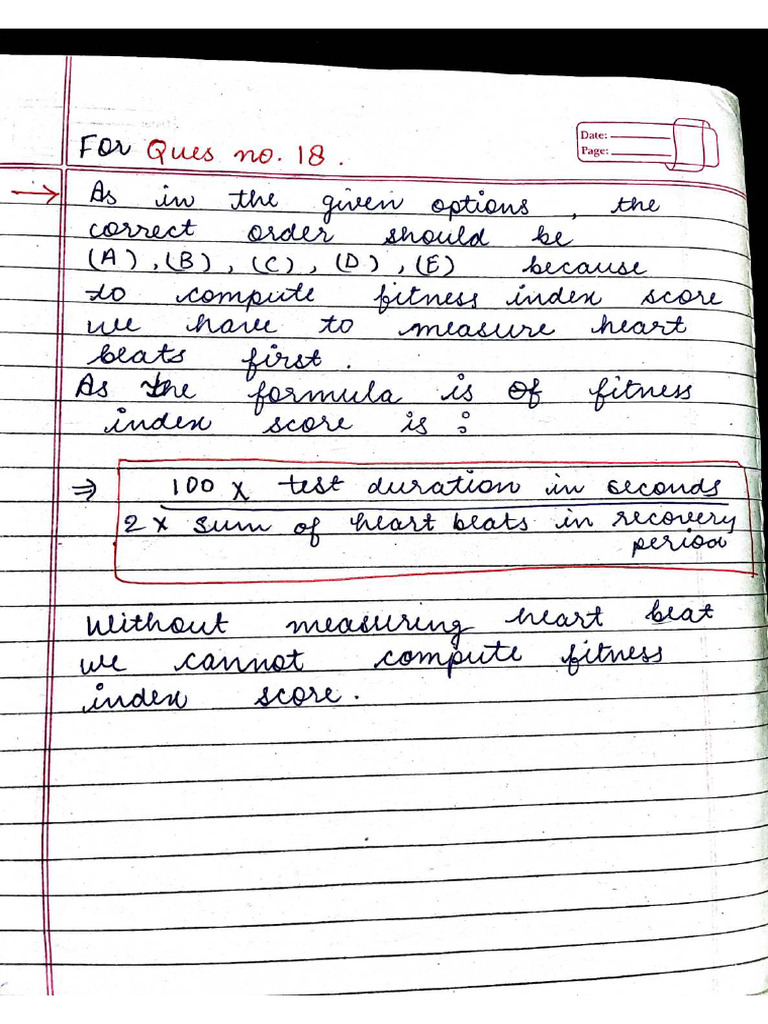 For Ques no. 18.
Date:
Page:
As in the given options, the
correct order should be
(A), (B), (C), (D), (E) because
to compute fitness index score
we have to measure heart
beats first.
As the formula is of fitness
index score is :
⇒ 100 x test duration in seconds
2 x sum of heart beats in recovery
period
Without measuring heart beat
we cannot compute fitness
index score.